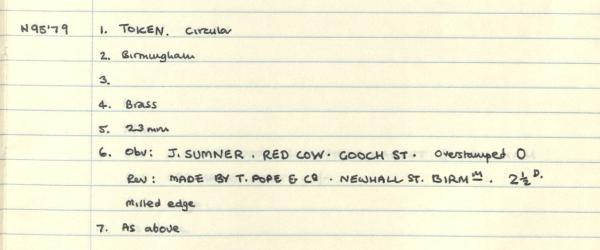 N95'79 1. TOKEN. Circular
2. Birmingham
3.
4. Brass
5. 23mm
6. Obv: J. SUMNER . RED COW . GOOCH ST . Overstamped O
Rev: MADE BY T. POPE & Co . NEWHALL ST. BIRM M . 2½ D.
Milled edge
7. As above